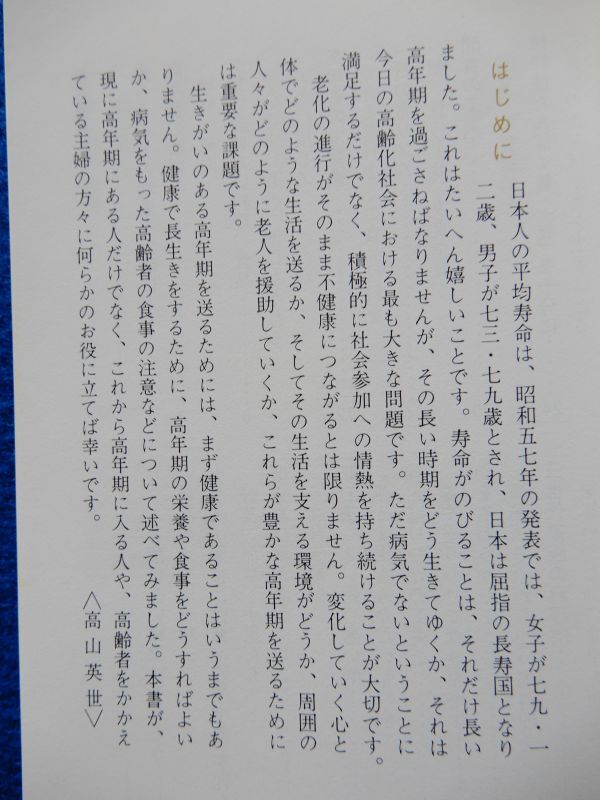 はじめに
日本人の平均寿命は、昭和五七年の発表では、女子が七九・一
二歳、男子が七三・七九歳とされ、日本は屈指の長寿国となり
ました。これはたいへん嬉しいことです。寿命がのびることは、それだけ長い
高年期を過ごさねばなりませんが、その長い時期をどう生きてゆくか、それは
今日の高齢化社会における最も大きな問題です。ただ病気でないということに
満足するだけでなく、積極的に社会参加への情熱を持ち続けることが大切です。
老化の進行がそのまま不健康につながるとは限りません。変化していく心と
体でどのような生活を送るか、そしてその生活を支える環境がどうか、周囲の
人々がどのように老人を援助していくか、これらが豊かな高年期を送るために
は重要な課題です。
生きがいのある高年期を送るためには、まず健康であることはいうまでもあ
りません。健康で長生きをするために、高年期の栄養や食事をどうすればよい
か、病気をもった高齢者の食事の注意などについて述べてみました。本書が、
現に高年期にある人だけでなく、これから高年期に入る人や、高齢者をかかえ
ている主婦の方々に何らかのお役に立てば幸いです。
〈高山英世〉